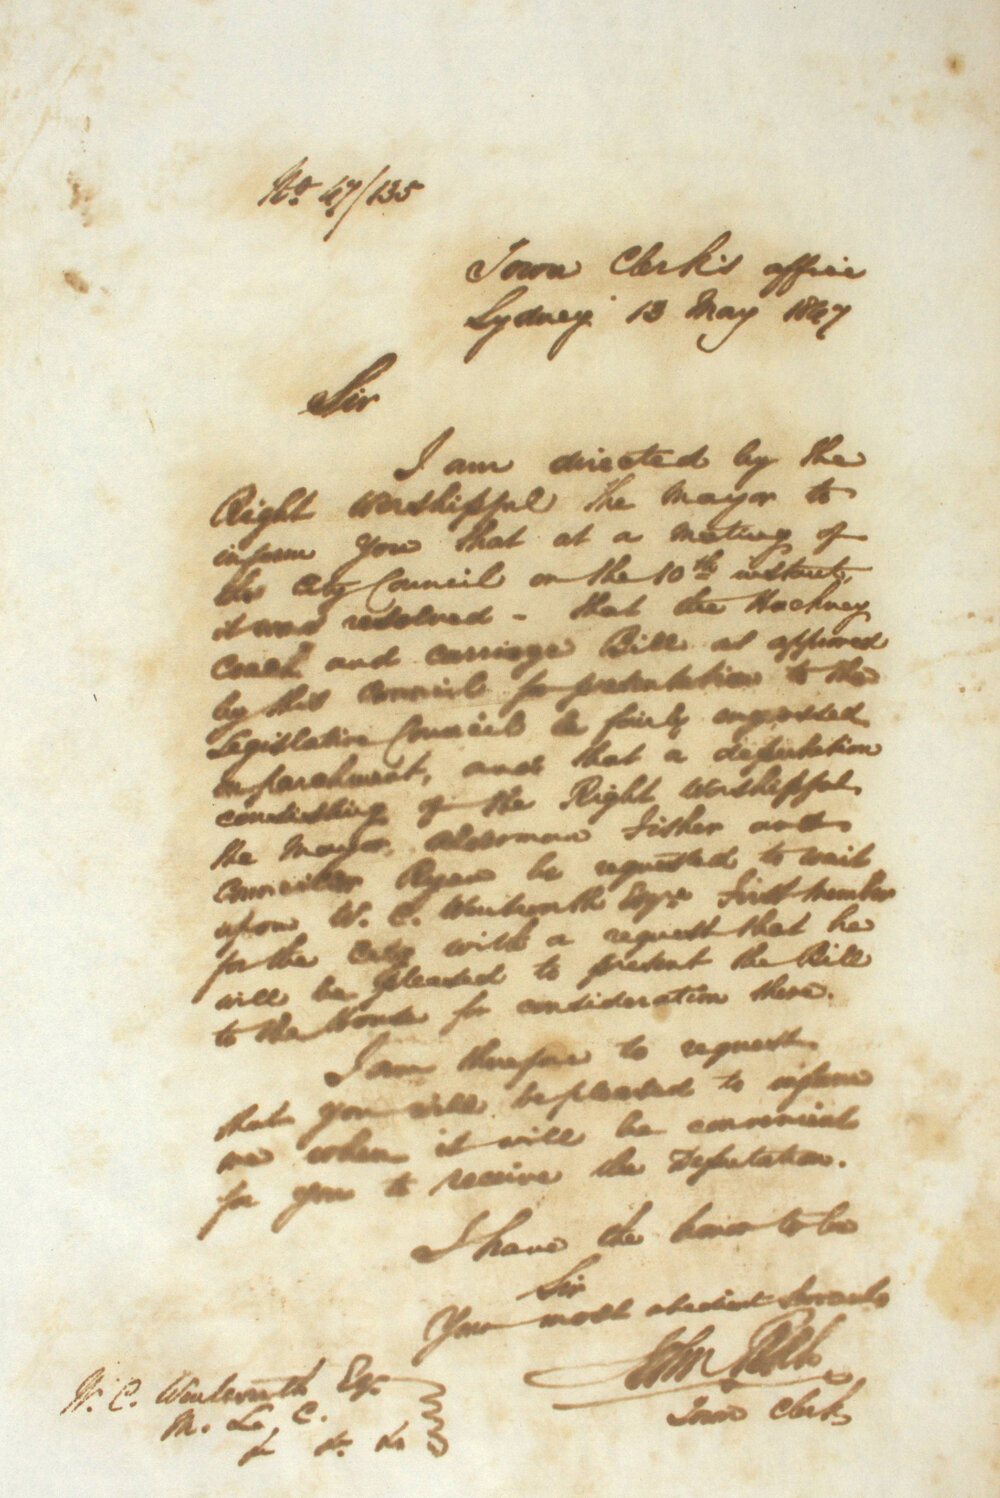 No. 47/135
Town Clerk's office
Sydney 13 May 1847
Sir
I am directed by the
Right Worshipful the Mayor to
inform you that at a meeting of
the City Council on the 10th instant,
it was resolved - that the Hackney
Coach and carriage Bill as approved
by this Council for presentation to the
Legislative Council be fairly engrossed
on parchment, and that a deputation
consisting of the Right Worshipful
the Mayor, Alderman Fisher and
Councillor Ryan be requested to wait
upon W. C. Wentworth Esqre First Member
for the City with a request that he
will be pleased to present the Bill
to the House for consideration there.
I am therefore to request
that you will be pleased to inform
me when it will be convenient
for you to receive the Deputation.
I have the honor to be
Sir
Your most obedient Servant
John
Town Clerk
W. C. Wentworth Esqr
M. L. C.